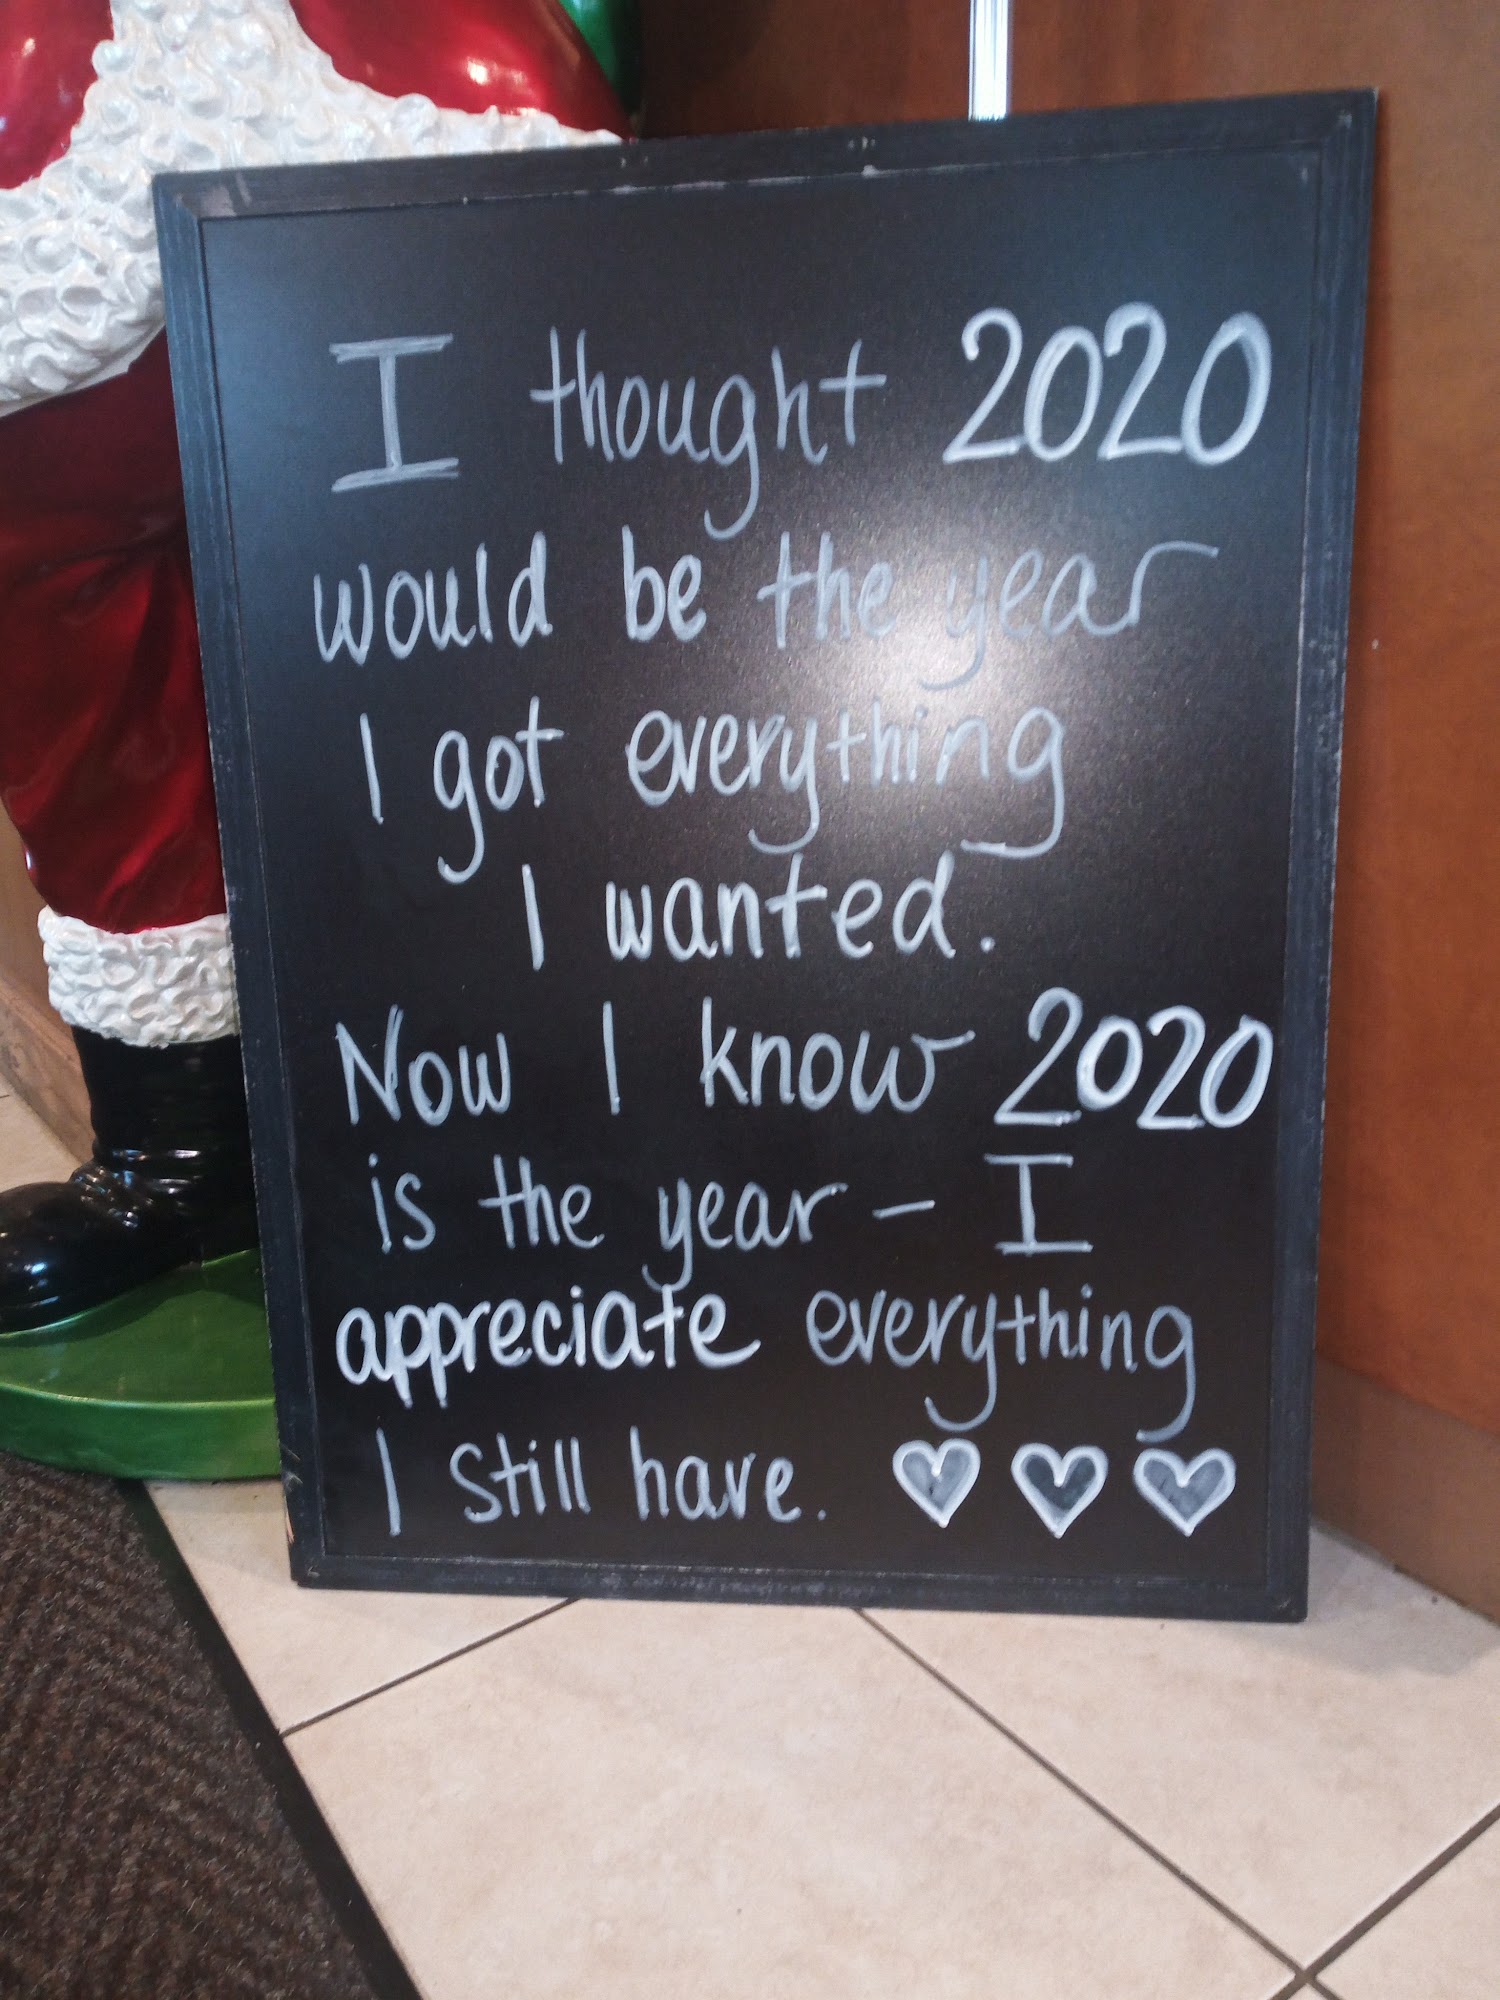 I thought 2020
would be the year
I got everything
I wanted.
Now I know 2020
is the year - I
appreciate everything
I still have. ♡ ♡ ♡